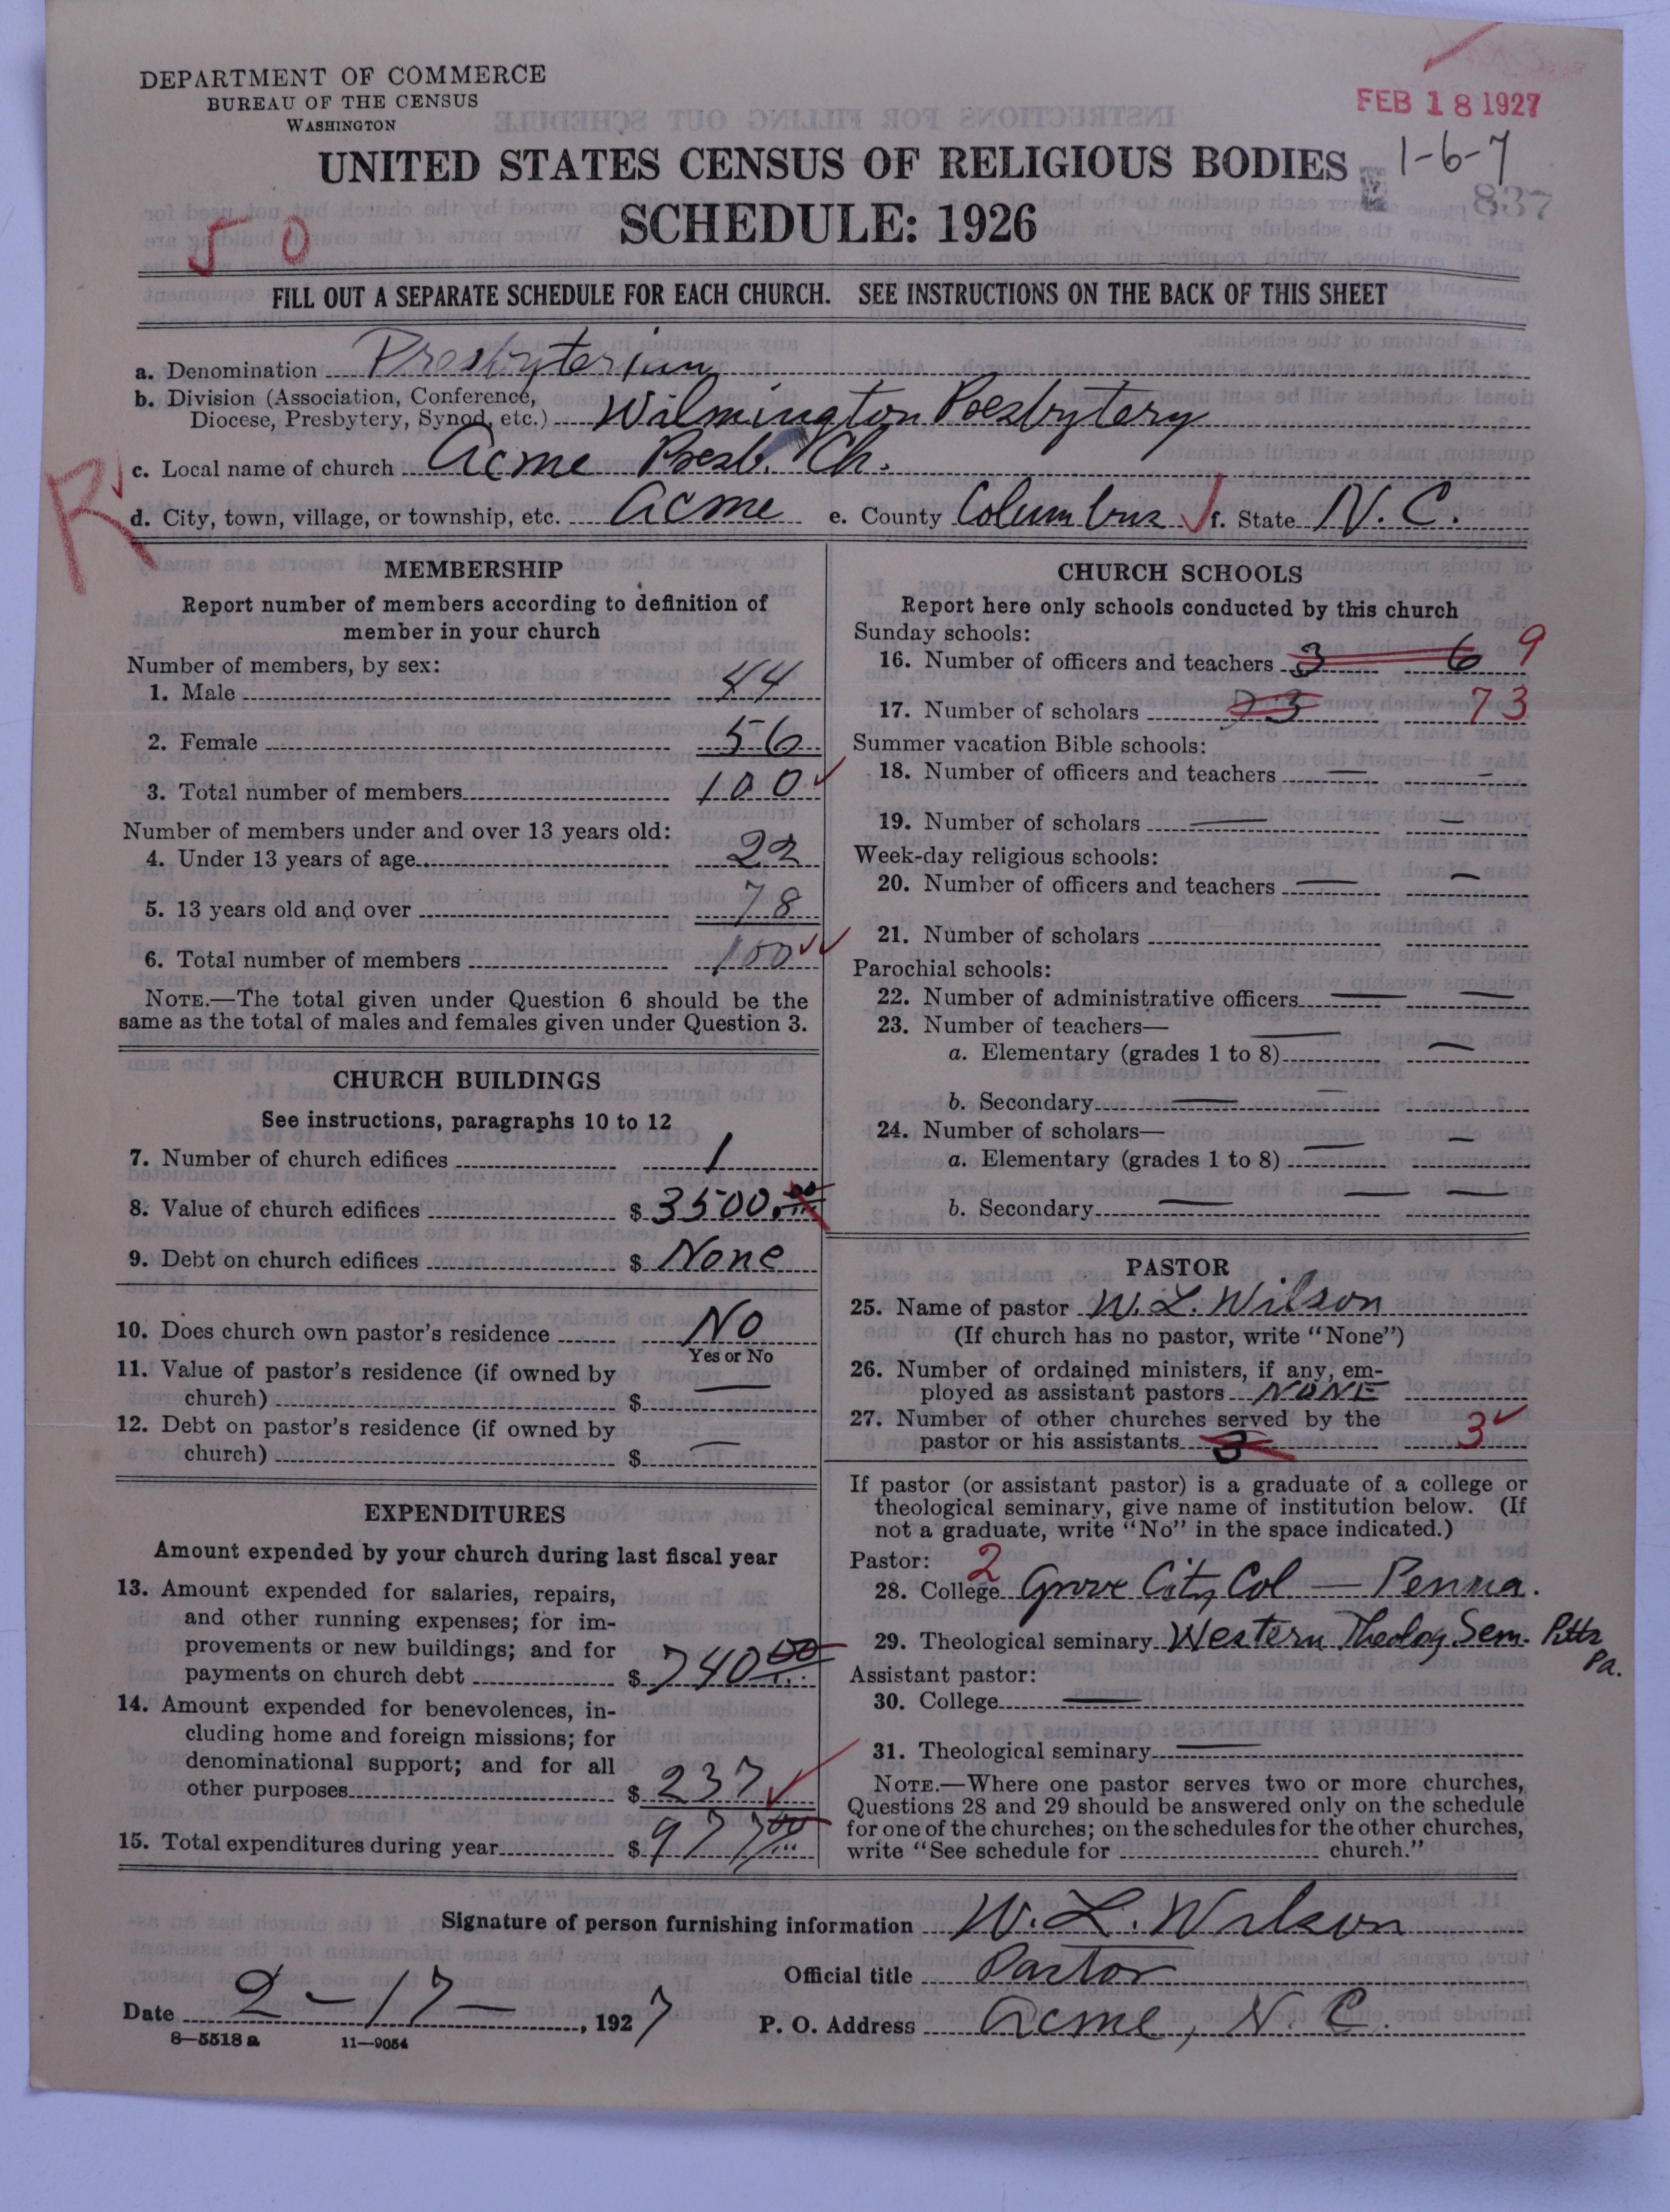 DEPARTMENT OF COMMERCE
BUREAU OF THE CENSUS
WASHINGTON
FEB 18 1927
UNITED STATES CENSUS OF RELIGIOUS BODIES
1-6-7
837
SCHEDULE: 1926
50
FILL OUT A SEPARATE SCHEDULE FOR EACH CHURCH. SEE INSTRUCTIONS ON THE BACK OF THIS SHEET
a. Denomination Presbyterian
b. Division (Association, Conference,
Diocese, Presbytery, Synod, etc.) Wilmington Presbytery
c. Local name of church Acme Presb. Ch.
R
d. City, town, village, or township, etc. Acme e. County Columbus f. State N.C.
MEMBERSHIP
Report number of members according to definition of
member in your church
Number of members, by sex:
1. Male 44
2. Female 56
3. Total number of members 100
Number of members under and over 13 years old:
4. Under 13 years of age 22
5. 13 years old and over 78
6. Total number of members 100
NOTE.—The total given under Question 6 should be the
same as the total of males and females given under Question 3.
CHURCH BUILDINGS
See instructions, paragraphs 10 to 12
7. Number of church edifices 1
8. Value of church edifices $ 3500.00
9. Debt on church edifices $ None
10. Does church own pastor's residence No
Yes or No
11. Value of pastor's residence (if owned by
church) $ —
12. Debt on pastor's residence (if owned by
church) $ —
EXPENDITURES
Amount expended by your church during last fiscal year
13. Amount expended for salaries, repairs,
and other running expenses; for im-
provements or new buildings; and for
payments on church debt $ 740 00
14. Amount expended for benevolences, in-
cluding home and foreign missions; for
denominational support; and for all
other purposes $ 237
15. Total expenditures during year $ 977 00
CHURCH SCHOOLS
Report here only schools conducted by this church
Sunday schools:
16. Number of officers and teachers 3 6 9
17. Number of scholars 73 73
Summer vacation Bible schools:
18. Number of officers and teachers — —
19. Number of scholars — —
Week-day religious schools:
20. Number of officers and teachers — —
21. Number of scholars
Parochial schools:
22. Number of administrative officers — —
23. Number of teachers—
a. Elementary (grades 1 to 8) — —
b. Secondary — —
24. Number of scholars—
a. Elementary (grades 1 to 8) — —
b. Secondary — — —
PASTOR
25. Name of pastor W. L. Wilson
(If church has no pastor, write "None")
26. Number of ordained ministers, if any, em-
ployed as assistant pastors NONE
27. Number of other churches served by the
pastor or his assistants 3 3
If pastor (or assistant pastor) is a graduate of a college or
theological seminary, give name of institution below. (If
not a graduate, write "No" in the space indicated.)
Pastor: 2
28. College Grove City Col — Penna.
29. Theological seminary Western Theolog. Sem. Pitts
Pa.
Assistant pastor:
30. College —
31. Theological seminary —
NOTE.—Where one pastor serves two or more churches,
Questions 28 and 29 should be answered only on the schedule
for one of the churches; on the schedules for the other churches,
write "See schedule for church."
Signature of person furnishing information W. L. Wilson
Official title Pastor
Date 2-17-, 1927
P. O. Address Acme, N. C.
8—5518 a 11—9054